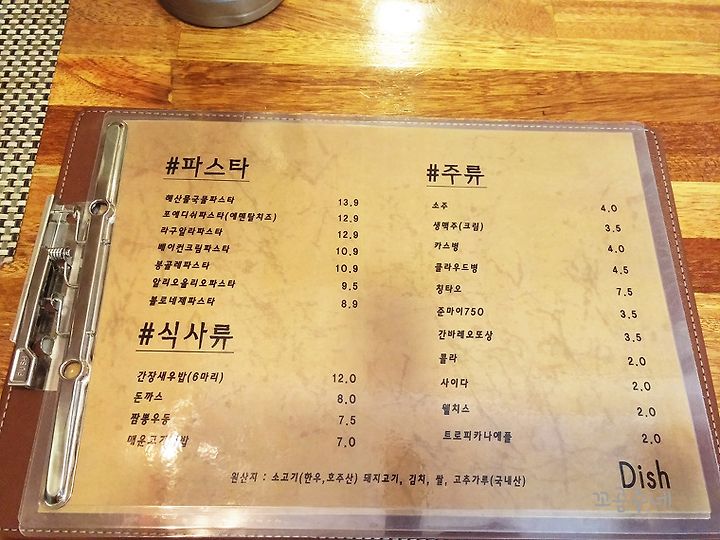 #파스타
해산물국물파스타 13.9
포에디쉬파스타(에멘탈치즈) 12.9
라구알라파스타 12.9
베이컨크림파스타 10.9
봉골레파스타 10.9
알리오올리오파스타 9.5
볼로네제파스타 8.9
#식사류
간장새우밥(6마리) 12.0
돈까스 8.0
짬뽕우동 7.5
매운고기 7.0
#주류
소주 4.0
생맥주(크림) 3.5
카스병 4.0
클라우드병 4.5
칭타오 7.5
준마이750 3.5
간바레오또상 3.5
콜라 2.0
사이다 2.0
웰치스 2.0
트로피카나애플 2.0
원산지 : 소고기(한우,호주산) 돼지고기, 김치, 쌀, 고추가루(국내산)
Dish
PUSH